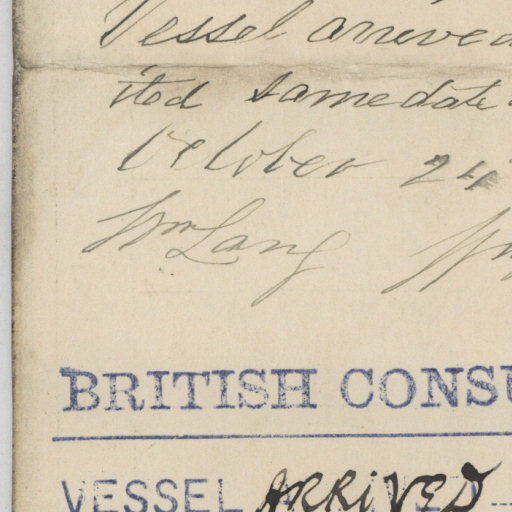 Vessel arrived
ited same date
October 24
Wm Lang
BRITISH CONSU
VESSEL ARRIVED